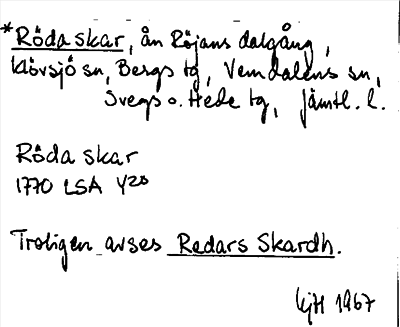 *Röda skar, ån Röjans dalgång,
Klövsjö sn, Bergs tg, Vemdalens sn,
Svegs o. Hede tg, Jämtl. l.
Röda skar
1770 LSA Y28
Troligen avses Redars Skardh.
1967